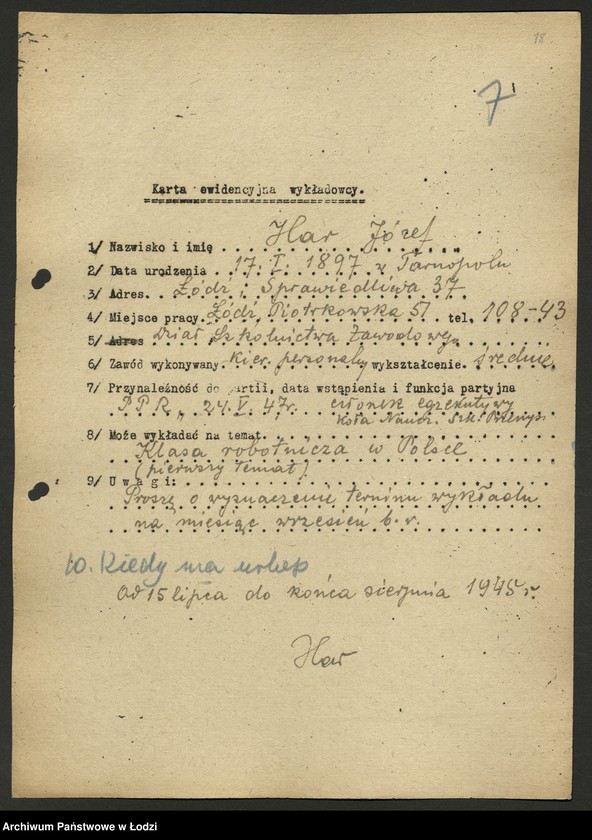 18
7
Karta ewidencyjna wykładowcy.
1/ Nazwisko i imię Har Józef
2/ Data urodzenia 17. I. 1897 w Tarnopolu
3/ Adres. Łódź; Sprawiedliwa 37
4/ Miejsce pracy. Łódź, Piotrkowska 51 tel. 108-43
5/ Adres Dział Szkolnictwa Zawodowego
6/ Zawód wykonywany. kier. personalny wykształcenie. średnie
7/ Przynależność do partii, data wstąpienia i funkcja partyjna
P.P.R., 24. V. 47r. członek egzekutywy
Koła Naucz. Szk. Przemysł.
8/ Może wykładać na temat.
Klasa robotnicza w Polsce
(pierwszy temat)
9/ U w a g i:
Proszę o wyznaczenie terminu wykładu
na miesiąc wrzesień b. r.
10. Kiedy ma urlop
Od 15 lipca do końca sierpnia 1945 r.
Har
Archiwum Państwowe w Łodzi